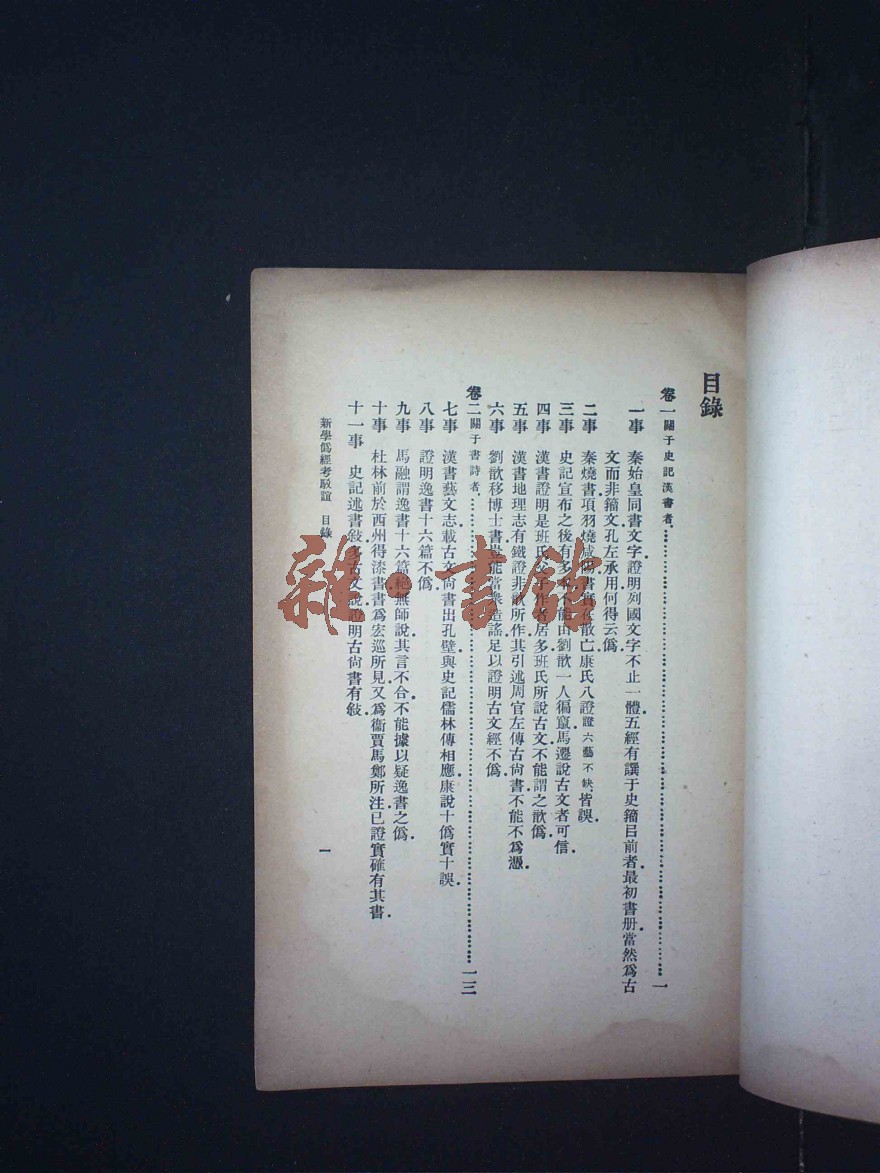 目錄
卷一關于史記漢書者一
一事 秦始皇同書文字證明列國文字不止一體五經有譔于史籀㠯前者最初書册當然為古
文而非籀文孔左承用何得云僞
二事 秦燒書項羽燒咸陽書實在散亡康氏八證證六藝不缺皆誤
三事 史記宣布之後有多本能由劉歆一人徧竄馬遷說古文者可信
四事 漢書證明是班氏父子作者居多班氏所說古文不能謂之歆僞
五事 漢書地理志有鐵證非歆所作其引述周官左傳古尚書不能不爲憑
六事 劉歆移博士書豈能當衆造謠足以證明古文經不僞
卷二關于書詩者一三
七事 漢書藝文志載古文尚書出孔壁與史記儒林傳相應康說十僞實十誤
八事 證明逸書十六篇不僞
九事 馬融謂逸書十六篇絕無師說其言不合不能據以疑逸書之僞
十事 杜林前於西州得漆書書爲宏巡所見又爲衞賈馬鄭所注已證實確有其書
十一事 史記述書敍多古文說證明古尚書有敍
新學僞經考駁誼 目錄
一
雜·書館